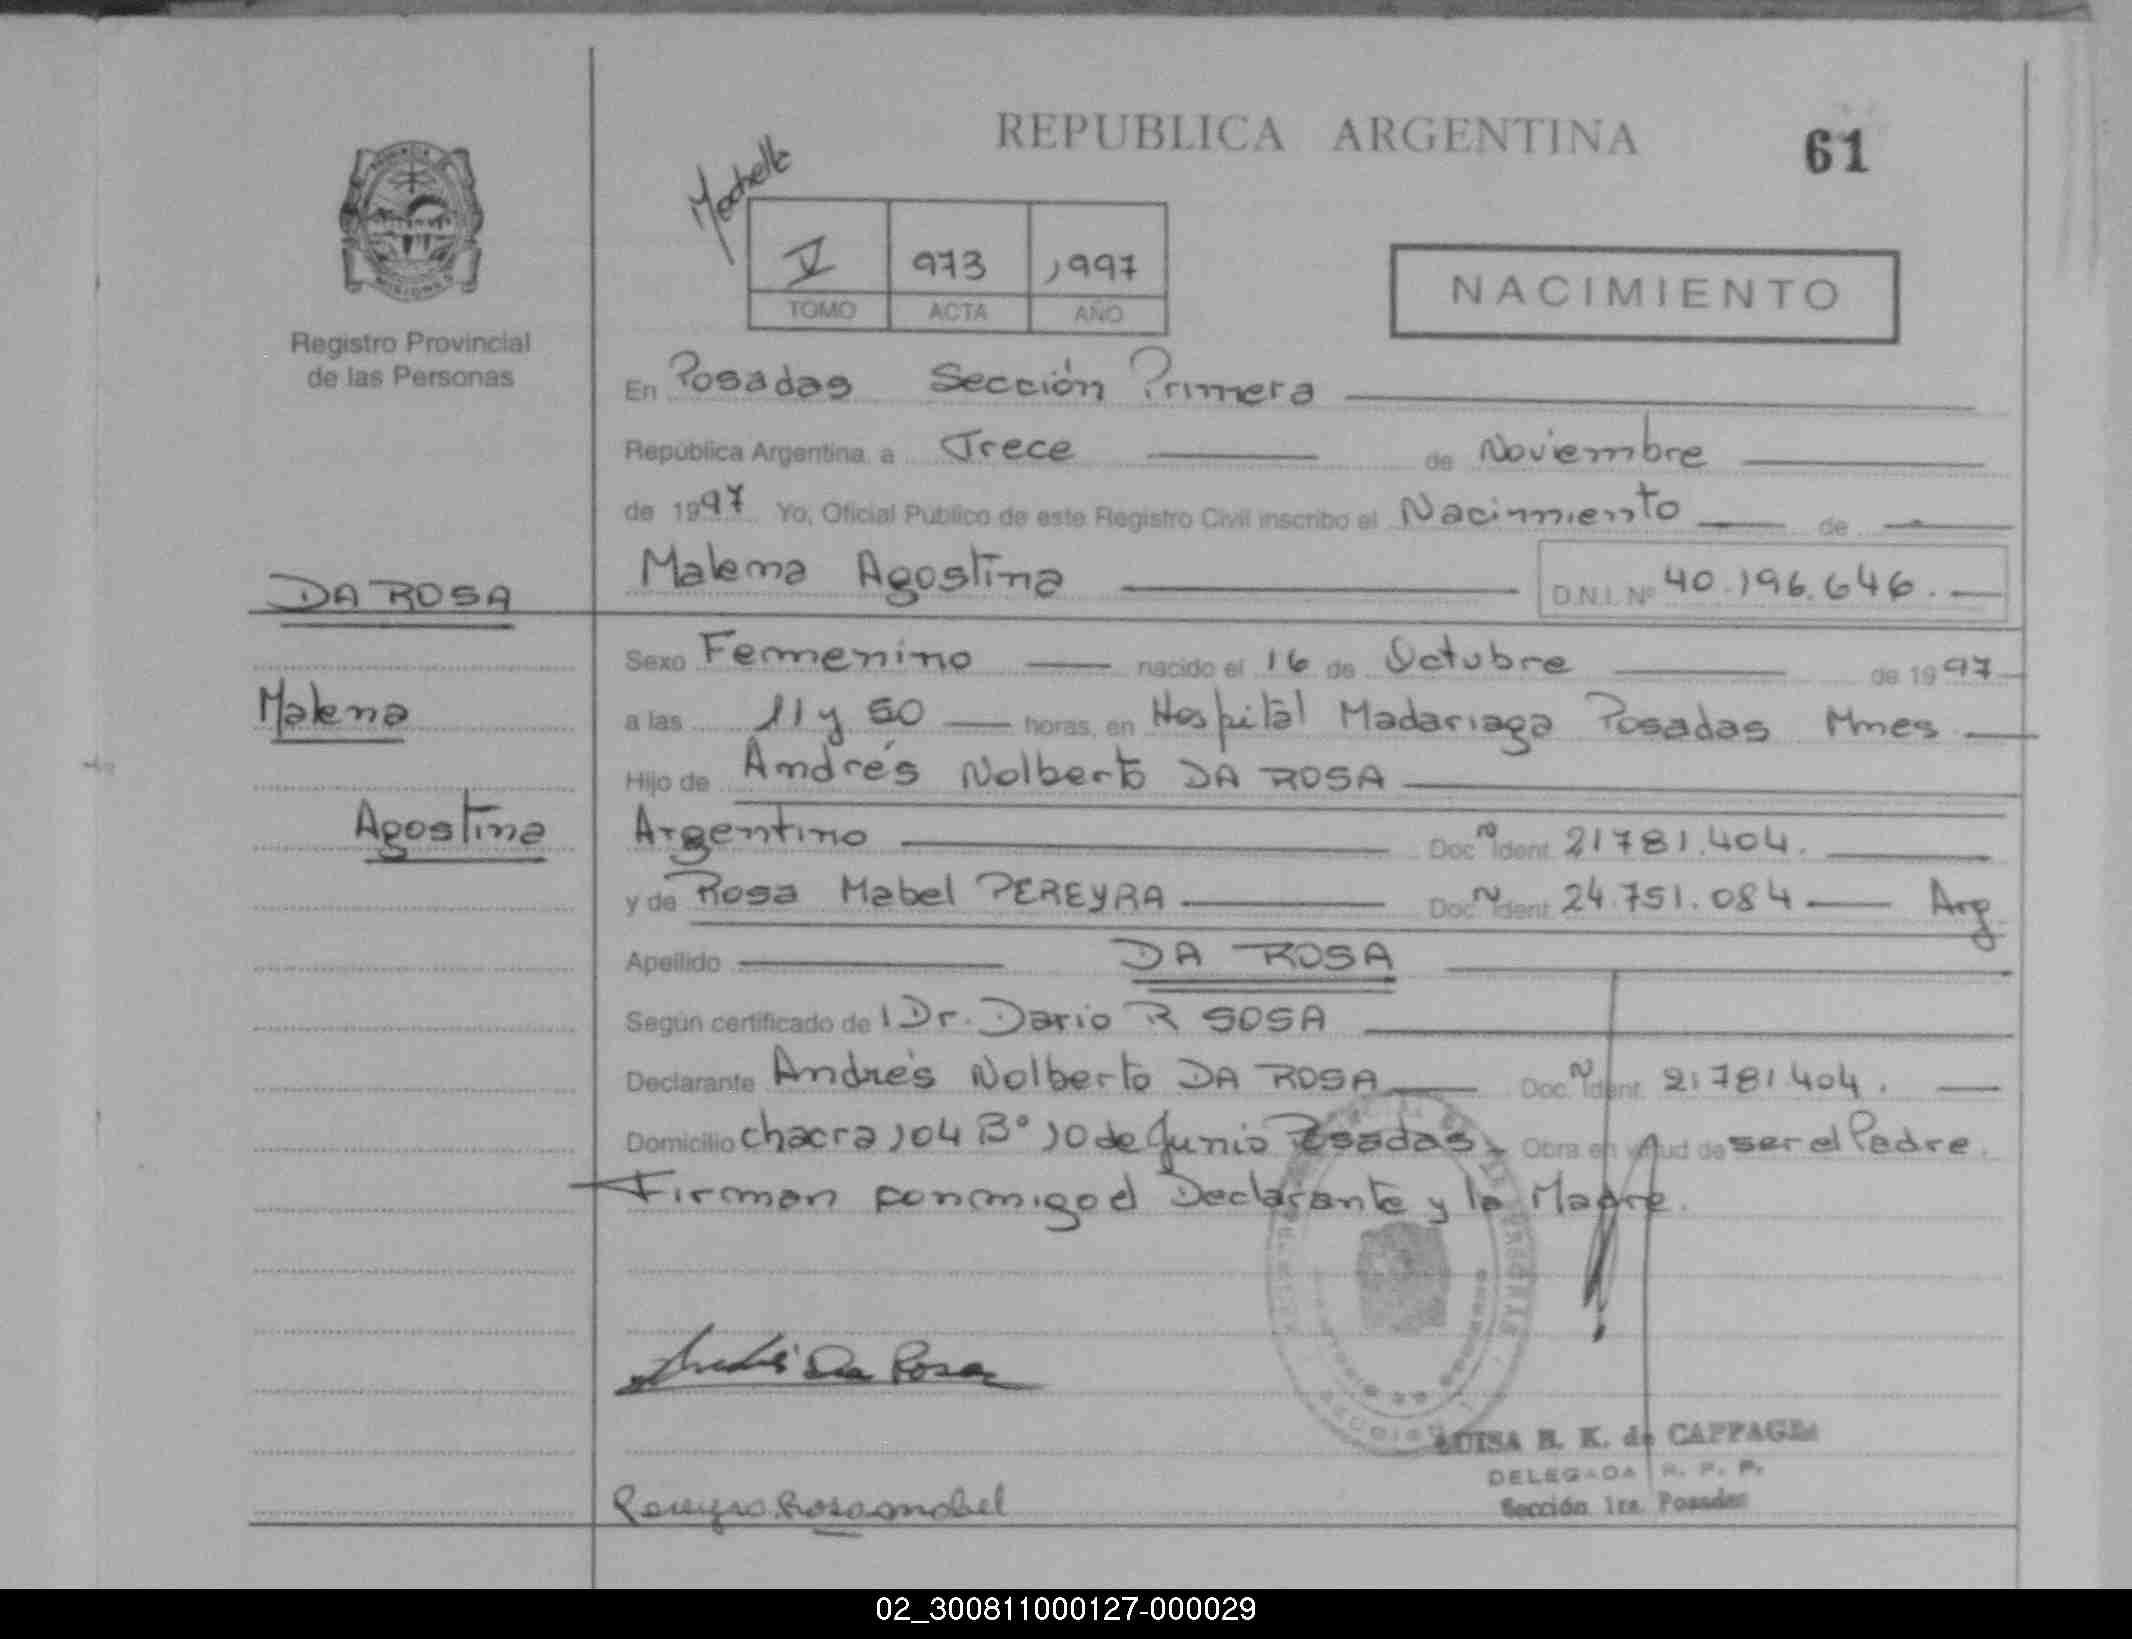 REPUBLICA ARGENTINA
61
V 973 1997
TOMO ACTA AÑO
NACIMIENTO
MISIONES
Registro Provincial
de las Personas
En Posadas Sección Primera
República Argentina, a Trece de Noviembre
de 1997 Yo, Oficial Público de este Registro Civil inscribo el Nacimiento de
DA ROSA
Malena Agostina D.N.I. Nº 40.196.646.
Sexo Femenino nacido el 16 de Octubre de 1997
Malena
a las 11 y 50 horas, en Hospital Madariaga Posadas Mnes
Hijo de Andrés Nolberto DA ROSA
Agostina
Argentino Doc. Ident. 21781.404.
y de Rosa Mabel PEREYRA Doc. Ident. 24.751.084 Arg.
Apellido DA ROSA
Según certificado de l Dr. Dario R SOSA
Declarante Andrés Nolberto DA ROSA Doc. Ident. 21781404.
Domicilio chacra 104 Bº 10 de Junio Posadas Obra en virtud de ser el Padre.
Firman conmigo el Declarante y la Madre.
Andrés Da Rosa
LUISA B. K. de CAPPAGLI
DELEGADA R. P. P.
Sección 1ra. Posadas
Pereyra Rosa mabel
02_300811000127-000029